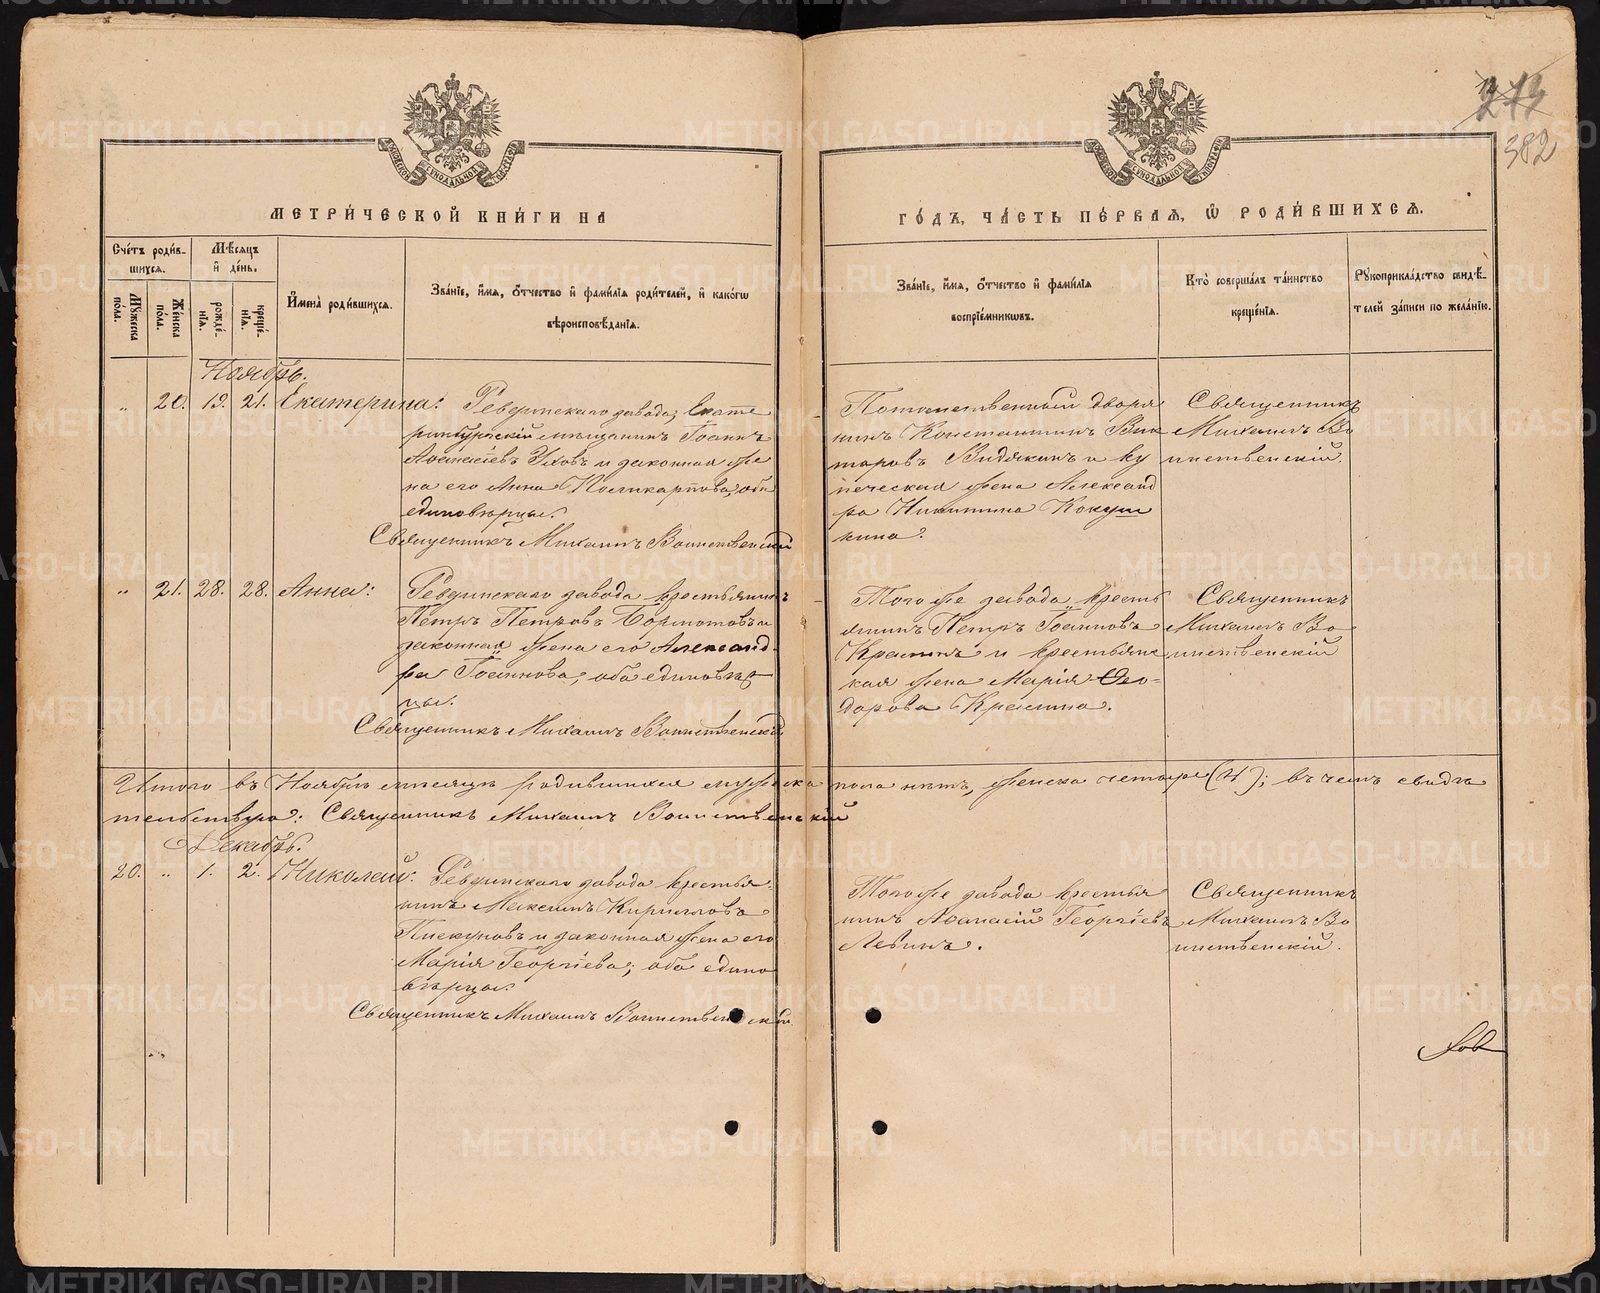 273
382
МЕТРИ́ЧЕСКОЙ КНИ́ГИ НА
ГО́ДЪ, ЧА́СТЬ ПЕ́РВАЯ, Ѡ҆ РОДИ́ВШИХСЯ.
Сче́тъ роди́в-
шихся.
Мѣ́сяцъ
и҆ де́нь.
Мꙋ́жеска
по́ла.
Же́нска
по́ла.
рожде́-
нїя.
креще́-
нїя.
И҆мена̀ роди́вшихся.
Зва́нїе, и҆́мя, ѻ҆́тчество и҆ фами́лїя роди́телей, и҆ како́гѡ
вѣроисповѣ́данїя.
Зва́нїе, и҆́мя, ѻ҆́тчество и҆ фами́лїя
воспрїе́мникѡвъ.
Кто̀ соверша́лъ та́инство
креще́нїя.
Рꙋкоприкла́дство свидѣ́-
телей за́писи по жела́нїю.
Ноябрь.
" 20. 19. 21. Екатерина: Ревдинскаго завода; Екате
ринбургскій мѣщанинъ Іоаннъ
Алексіевъ Уховъ и законная же
на его Анна Поликарпова; оба
единовѣрцы.
Священникъ Михаилъ Воинственскій
Потомственный дворя
нинъ Константинъ Вик
торовъ Видякинъ и ку
печеская жена Александ
ра Никитина Кокуш
кина.
Священникъ
Михаилъ Во
инственскій.
" 21. 28. 28. Анна: Ревдинскаго завода крестьянинъ
Петръ Петровъ Бормотовъ и
законная жена его Александ
ра Іоаннова, оба единовѣр
цы.
Священникъ Михаилъ Воинственскій
Того же завода кресть
янинъ Петръ Іоанновъ
Крапинъ и крестьянс
кая жена Марія Ѳео-
дорова Крапина.
Священникъ
Михаилъ Во
инственскій
Итого въ Ноябрѣ мѣсяцѣ родившихся мужска пола нѣтъ, женска четыре (4); въ чемъ свидѣ
тельствую: Священникъ Михаилъ Воинственскій
Декабрь.
20. " 1. 2. Николай: Ревдинскаго завода крестья
нинъ Максимъ Кирилловъ
Пискуновъ и законная жена его
Марія Георгіева; оба едино
вѣрцы.
Священникъ Михаилъ Воинственскій
Того же завода крестья
нинъ Аѳанасій Георгіевъ
Левинъ.
Священникъ
Михаилъ Во
инственскій.
METRIKI.GASO-URAL.RU